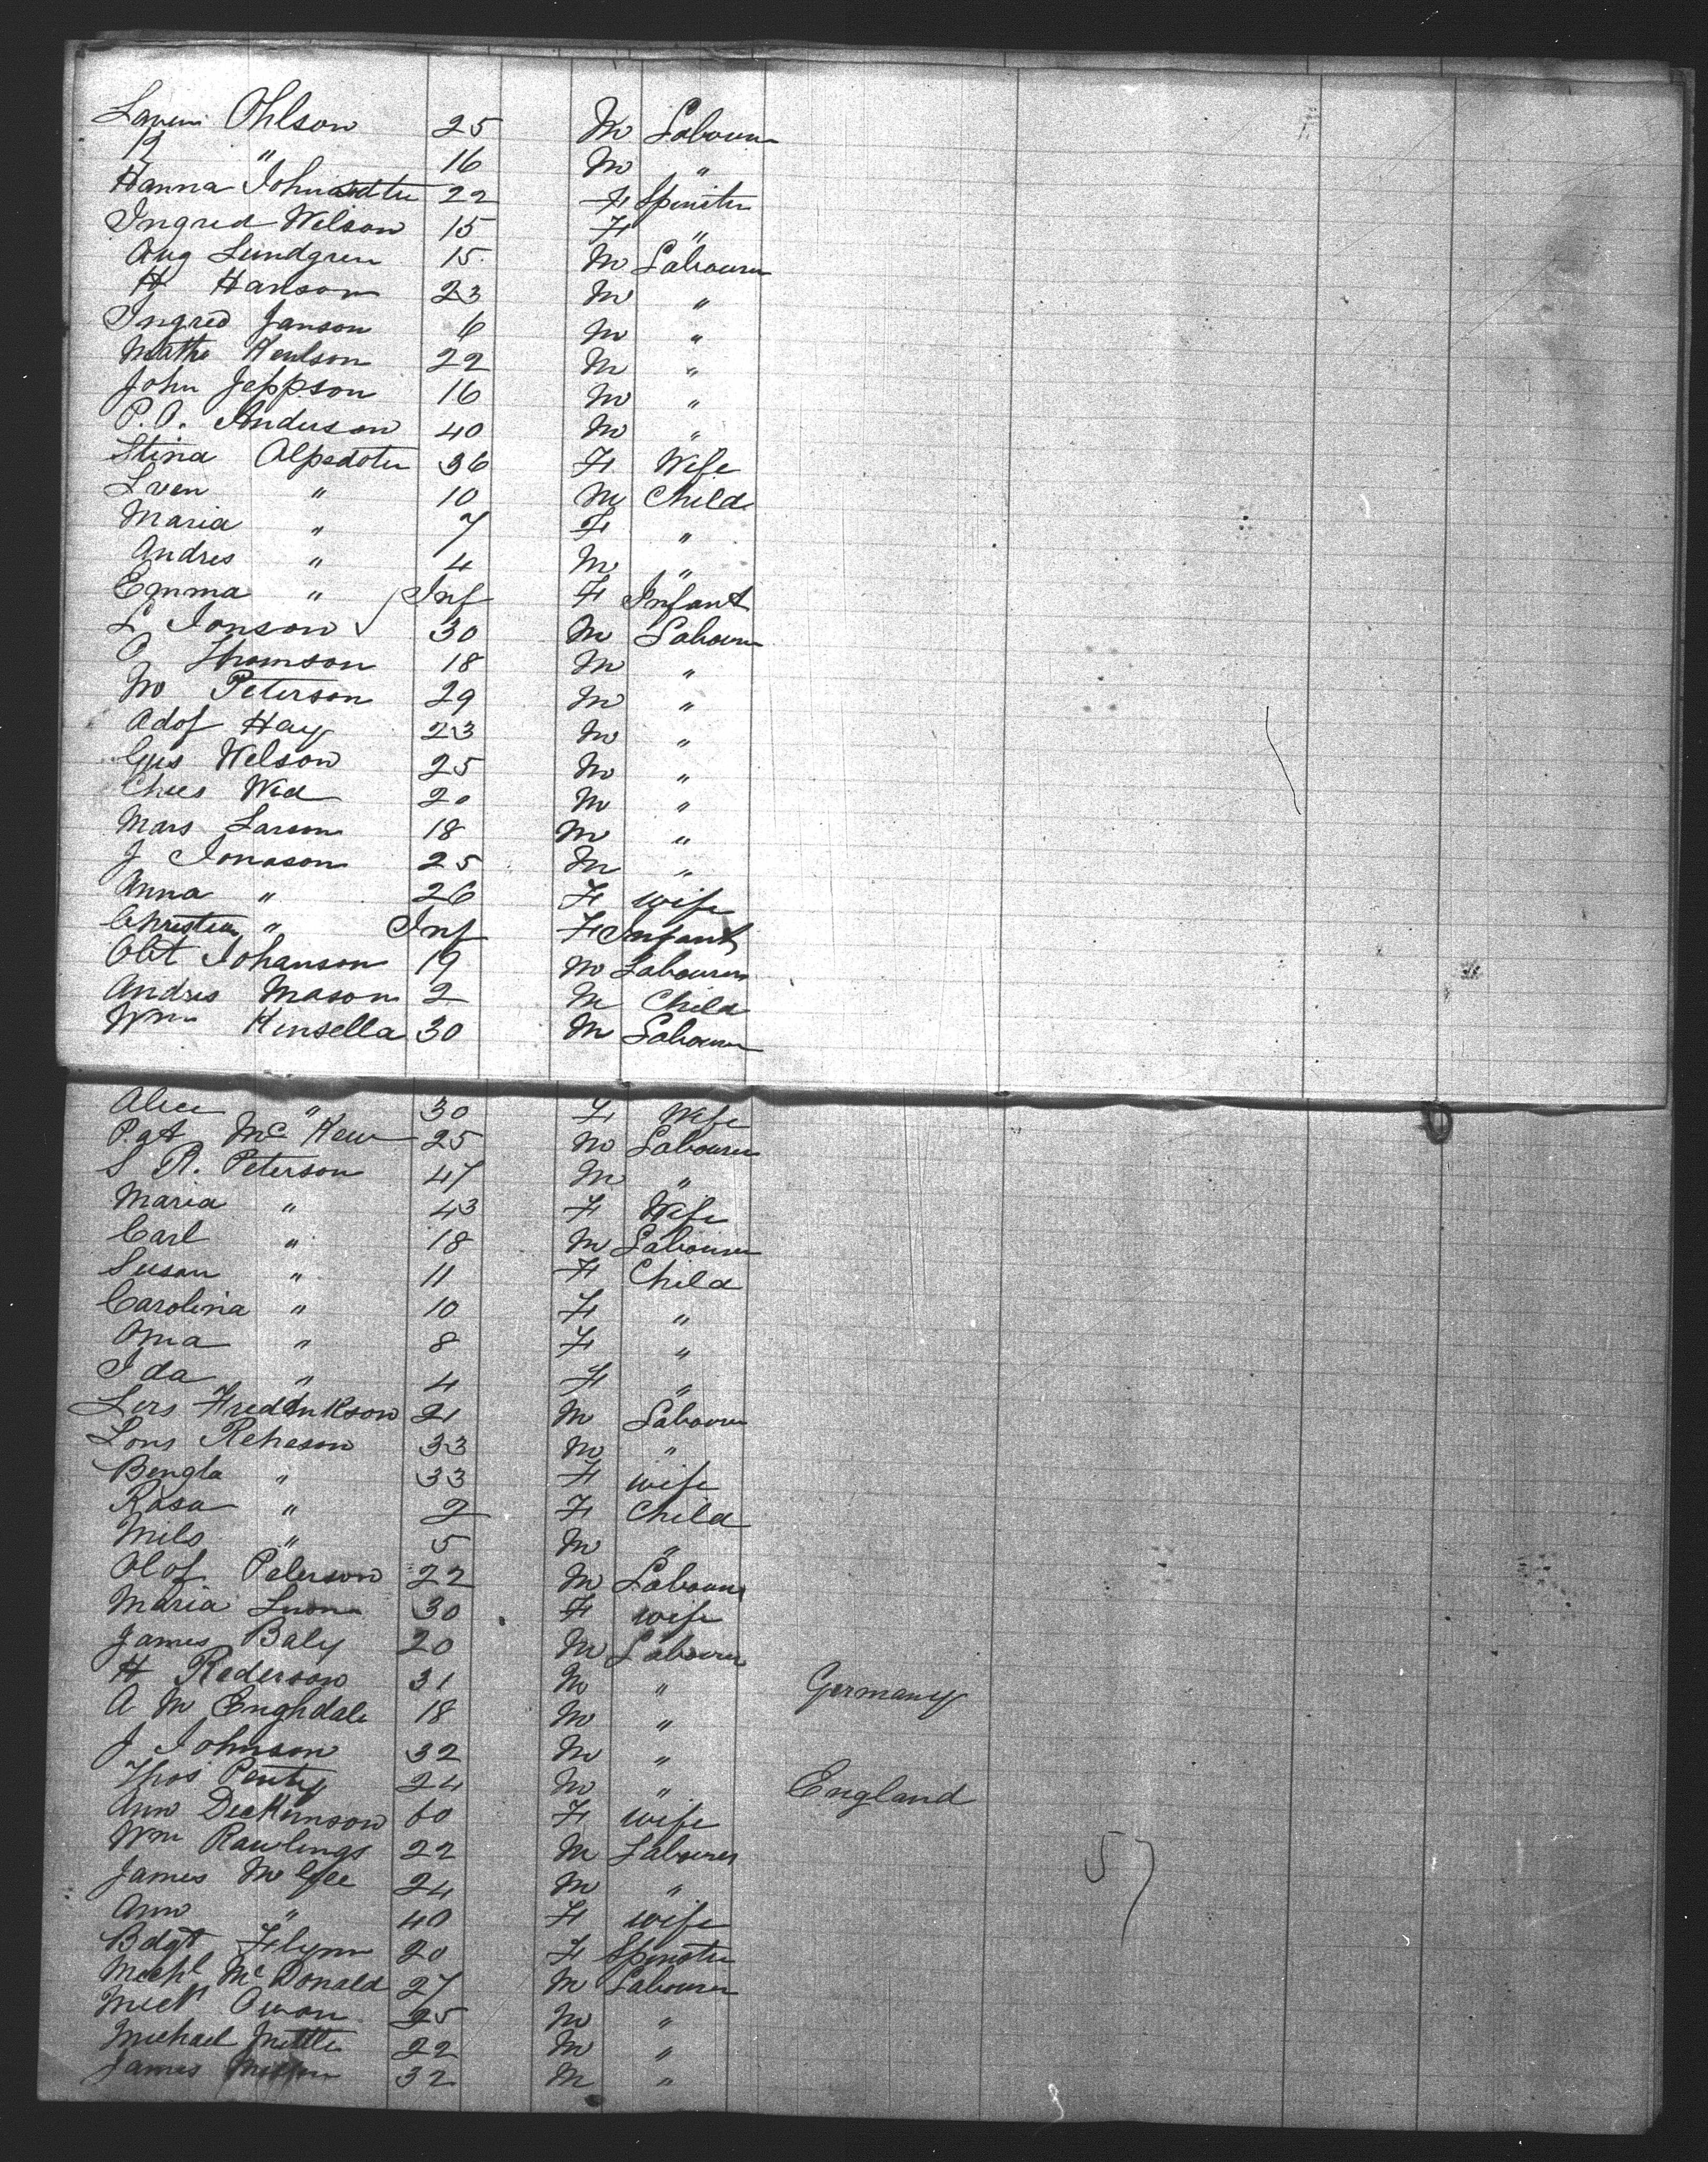 Ohlson 25 M Labourer
" 16 M "
Hanna 22 F Spinster
Ingred Nelson 15 F "
Aug Lundgren 15 M Labourer
H Hanson 23 M "
Ingred Janson 6 M "
22 M "
John Jeppson 16 M "
P.O. Anderson 40 M "
Stina Alpsdotter 36 F Wife
Sven " 10 M Child
Maria " 7 F "
Andres " 4 M "
Emma " Inf F Infant
L Jonson 30 M Labourer
O Thomson 18 M "
M Peterson 29 M "
Adof Hay 23 M "
Gus Nelson 25 M "
20 M "
Mars Larson 18 M "
J Jonason 25 M "
Anna " 26 F wife
" Inf F Infant
Johanson 19 M Labourer
Andres Mason 2 M Child
Wm Kinsella 30 M Labourer
Alice " 30 F Wife
Pat McKew 25 M Labourer
S A. Peterson 47 M "
Maria " 43 F Wife
Carl " 18 M Labourer
Susan " 11 F Child
Carolina " 10 F "
" 8 F "
Ida " 4 F "
Lars Fredrikson 21 M Labourer
33 M "
Bengta " 33 F wife
Rosa " 2 F Child
Nils " 5 M "
Olof Peterson 22 M Labourer
Maria 30 F wife
James Baly 20 M Labourer
H Rederson 31 M " Germany
A M Enghdale 18 M "
J Johnson 32 M "
Thos Penty 24 M " England
Ann Deckinson 60 F wife
Wm Rawlings 22 M Labourer
James McGee 24 M "
Ann " 40 F wife
Bdgt Flynn 20 F Spinster
Michl McDonald 27 M Labourer
Mick 25 M "
Michael 22 M "
James 32 M "
57